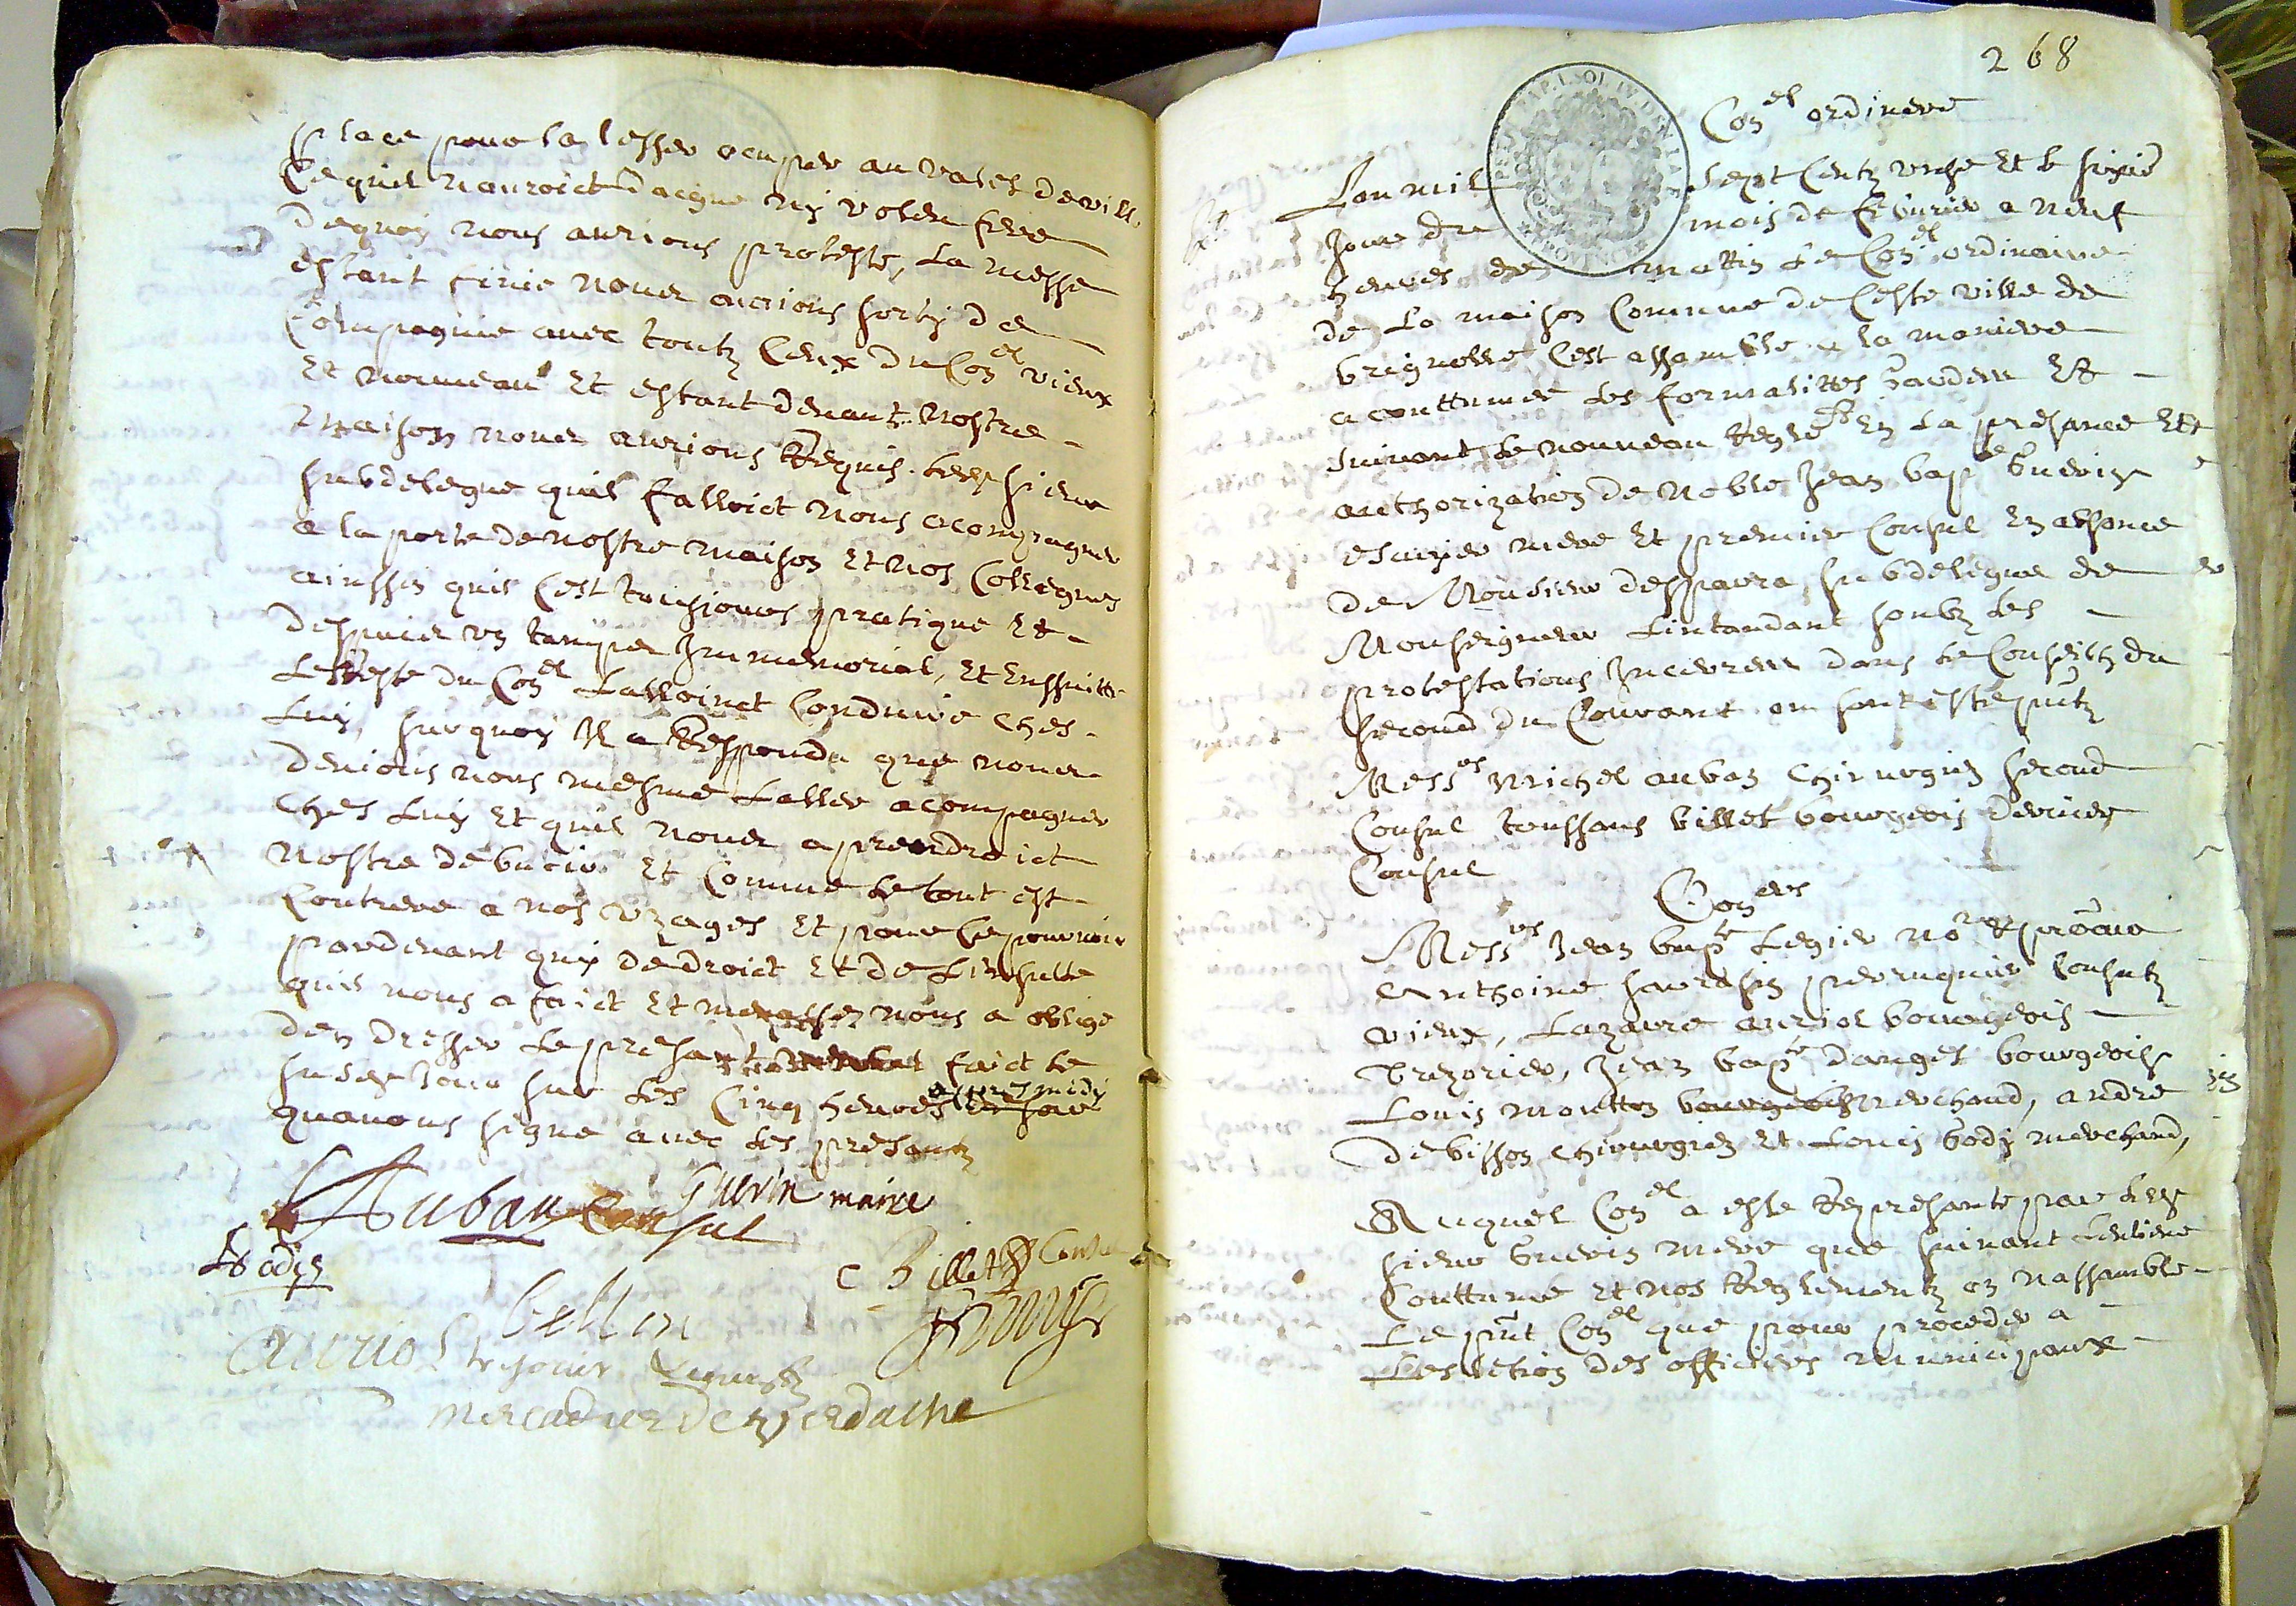 place pour la lesser ocuper au valet de ville
Ce quil nauroict daigne ny voleu fere
dequoy nous aurions proteste, La messe
estant finie nous aurions sorty de
Compagnie avec toutz Ceux du Conel vieux
Et nouveau Et estant devant nostre
maison nous aurions Requis ledt sieur
subdelegue quil falloict nous acompagner
a la porte de nostre maison Et nos Collegues
ainssin quil Cest tousjours pratique Et
despuis un temps Immemorial, Et Enssuitte
Le Reste du Conel Lalloinct Conduire Ches
Luy, surquoy Il a Respondu que nous
devions nous mesme Laller acompagner
Ches Luy Et quil nous aprendroict
nostre debvoir Et Comme le tout est
Contrere a nos uzages Et pour se pourvoir
pardevant quy de droict Et de Linsulte
quil nous a faict Et nous a oblige
den dresser le presant faict le
susdt jour sur les Cinq heures apres midy
quavons signe avec les presantz
Guerin maire
Auban Consul
Bodin
Billet Consul
bellon
auriol tresorier
mercadier
268
Conel ordinere
Lan mil sept Centz unse Et le sixie
jour du mois de febvrier a neuf
heures du mattin Le Conel ordinaire
de La maison Comune de Ceste ville de
brignolle Cest assamble a la maniere
acouttumee les formalittes gardees Et
suivant le nouveau Reglet En la presance Et
authorization de noble Jean bapte Guerin
escuyer mere Et premier Consul En absance
de Monsieur desparra, subdelegue de
Monseigneur Lintandant soubz les
protestations Incerees dans le Conseilh du
second du Courant ou sont este pntz
Mess.es Michel auban Chirurgien second
Consul toussans billet bourgeois dernier
Consul
Coners
Mess.es Jean bapte Legier nore Et procur
Anthoine sardin peruquier Consulz
vieux, Lazarre auriol bourgeois
trezorier, Jean bapte danget bourgeois
Louis moutton bourgeois merchand, andre
debisson chirurgien Et Louis body merchand,
Auquel Conel a este Represante par ledt
sieur Guerin mere que suivant Lentiene
Couttume Et nos Reglementz on nassamble
Le pnt Conel que pour proceder a
Leslection des officiers municipaux